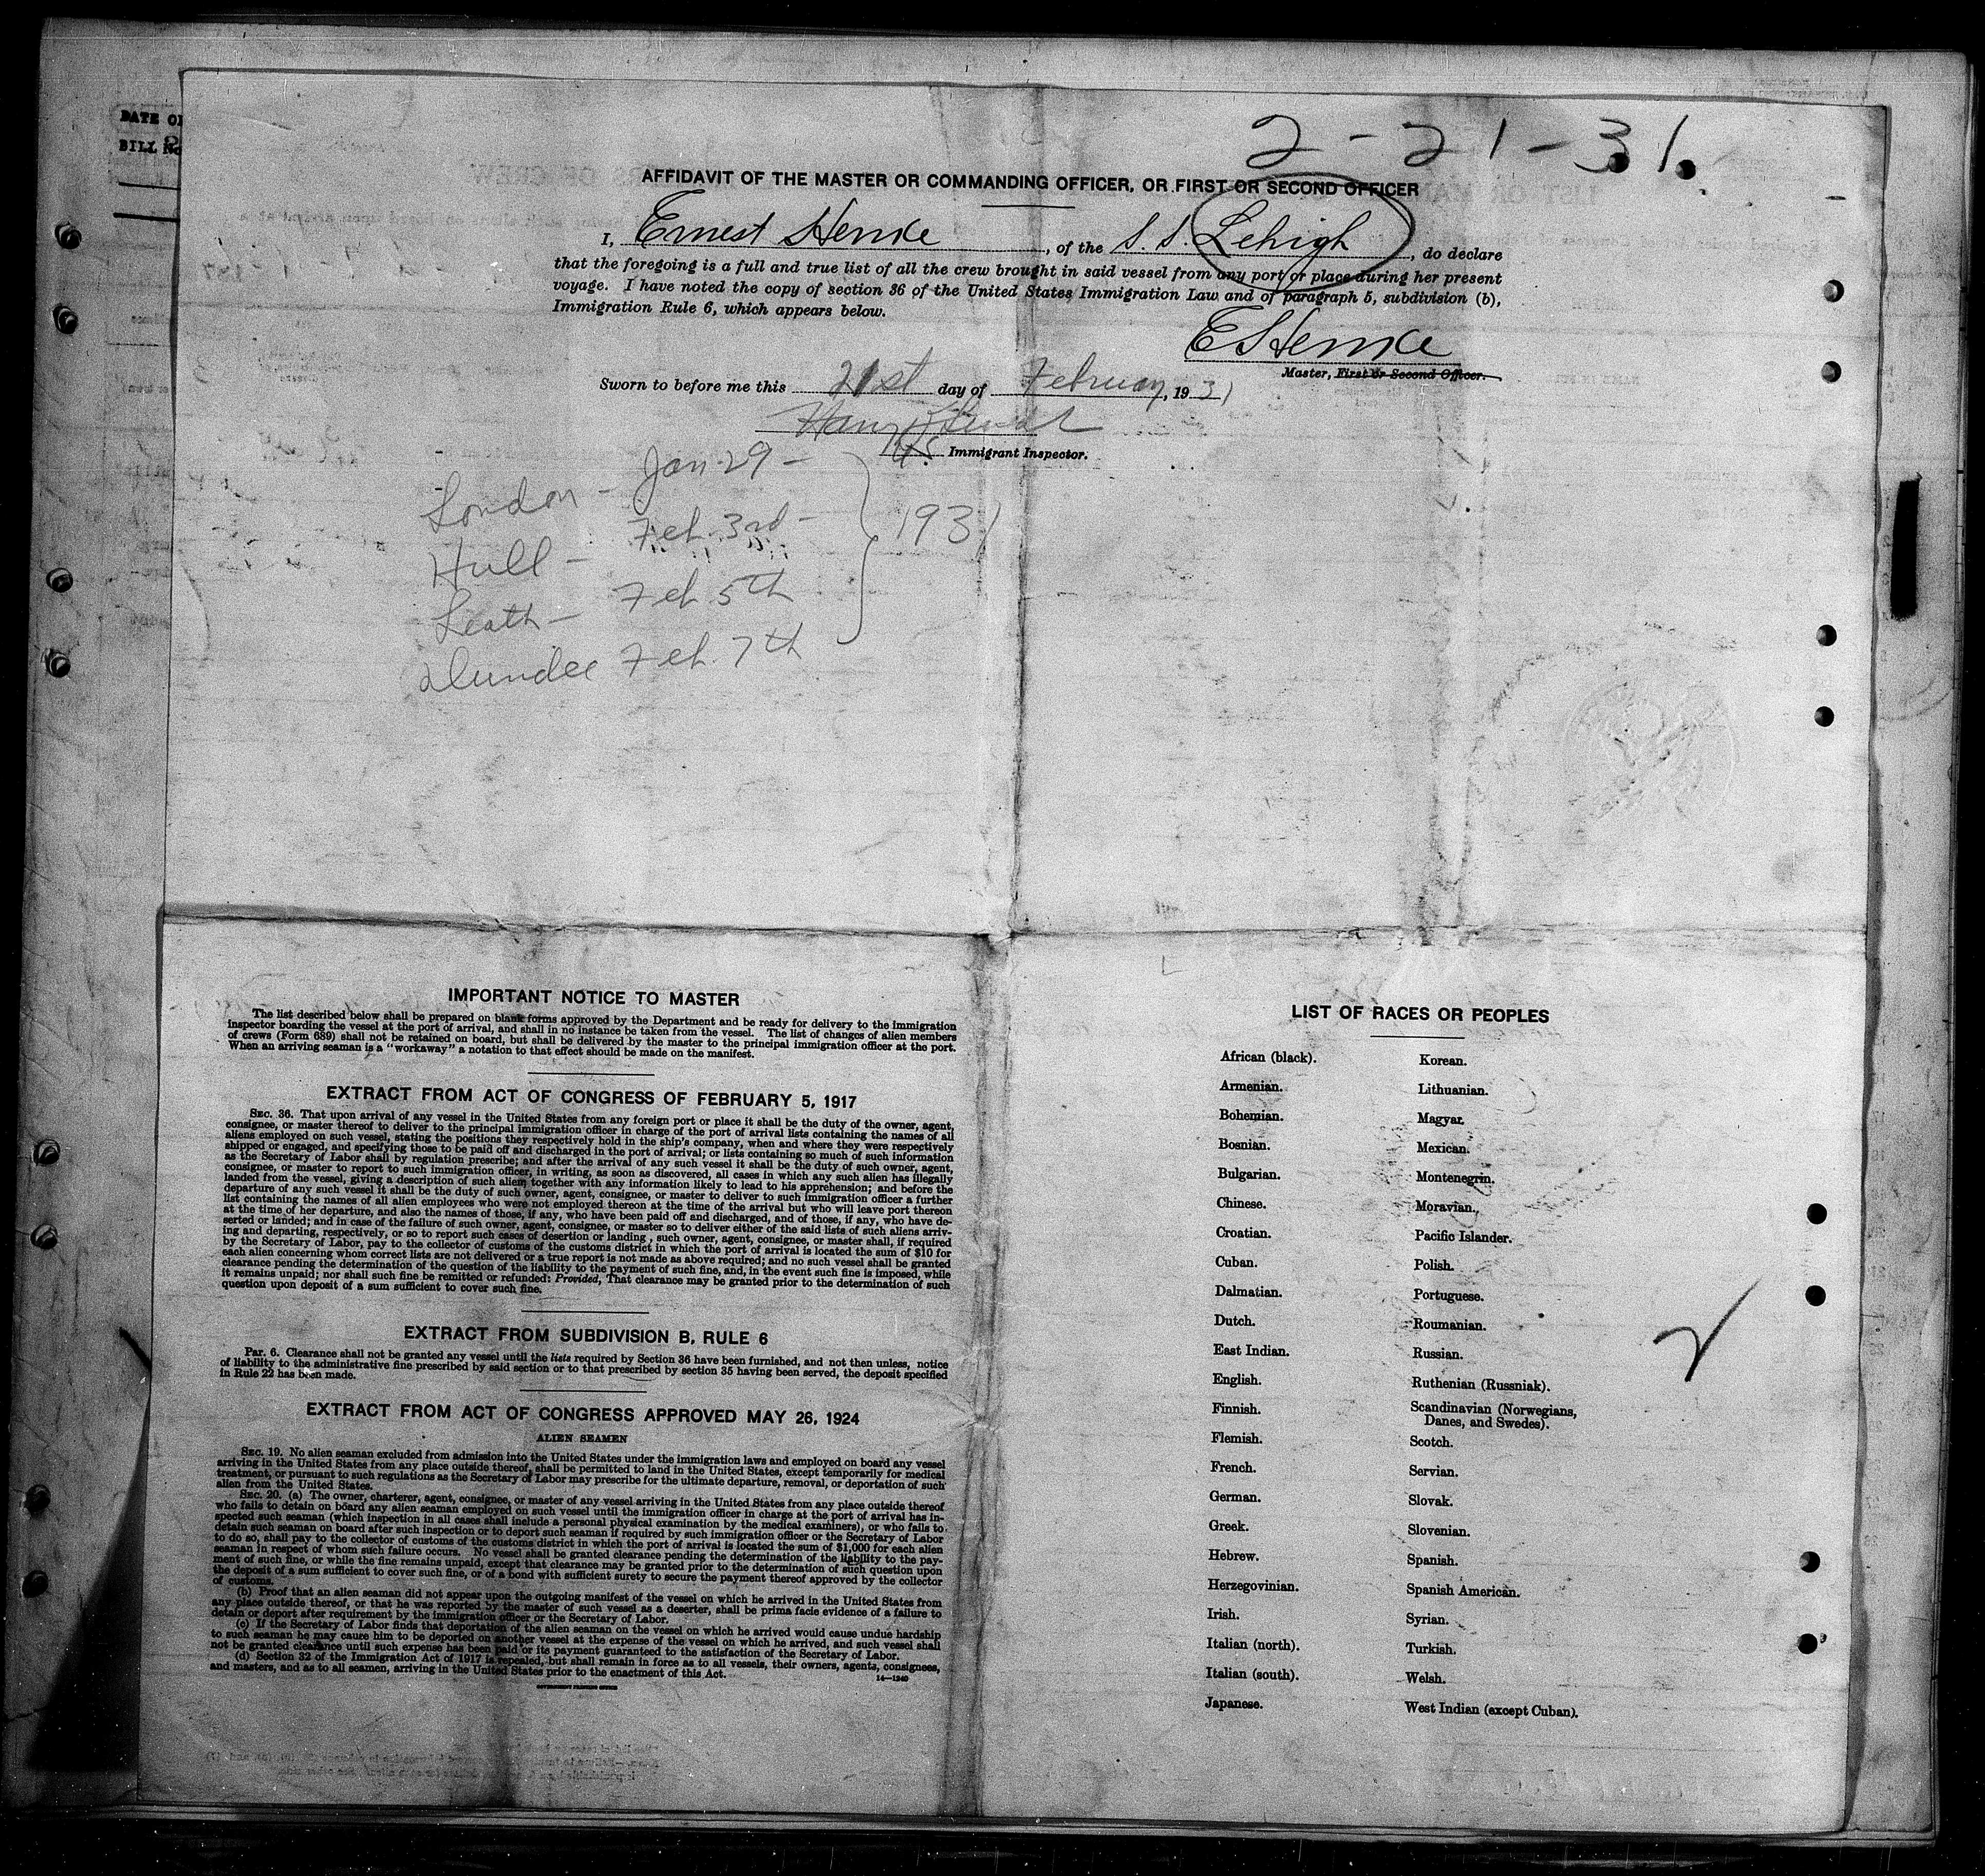 DATE OF
BILL NO
2 - 21 - 31.
AFFIDAVIT OF THE MASTER OR COMMANDING OFFICER, OR FIRST OR SECOND OFFICER
I, Ernest Henke, of the S.S. Lehigh, do declare
that the foregoing is a full and true list of all the crew brought in said vessel from any port or place during her present
voyage. I have noted the copy of section 36 of the United States Immigration Law and of paragraph 5, subdivision (b),
Immigration Rule 6, which appears below.
E Henke
Master, First or Second Officer.
Sworn to before me this 21st day of February, 1931
Immigrant Inspector.
London - Jan 29 -
Hull - Feb. 3rd -
Leath - Feb 5th
Dundee Feb. 7th
1931
IMPORTANT NOTICE TO MASTER
The list described below shall be prepared on blank forms approved by the Department and be ready for delivery to the immigration
inspector boarding the vessel at the port of arrival, and shall in no instance be taken from the vessel. The list of changes of alien members
of crews (Form 689) shall not be retained on board, but shall be delivered by the master to the principal immigration officer at the port.
When an arriving seaman is a "workaway" a notation to that effect should be made on the manifest.
EXTRACT FROM ACT OF CONGRESS OF FEBRUARY 5, 1917
SEC. 36. That upon arrival of any vessel in the United States from any foreign port or place it shall be the duty of the owner, agent,
consignee, or master thereof to deliver to the principal immigration officer in charge of the port of arrival lists containing the names of all
aliens employed on such vessel, stating the positions they respectively hold in the ship's company, when and where they were respectively
shipped or engaged, and specifying those to be paid off and discharged in the port of arrival; or lists containing so much of such information
as the Secretary of Labor shall by regulation prescribe; and after the arrival of any such vessel it shall be the duty of such owner, agent,
consignee, or master to report to such immigration officer, in writing, as soon as discovered, all cases in which any such alien has illegally
landed from the vessel, giving a description of such alien, together with any information likely to lead to his apprehension; and before the
departure of any such vessel it shall be the duty of such owner, agent, consignee, or master to deliver to such immigration officer a further
list containing the names of all alien employees who were not employed thereon at the time of the arrival but who will leave port thereon
at the time of her departure, and also the names of those, if any, who have been paid off and discharged, and of those, if any, who have de-
serted or landed; and in case of the failure of such owner, agent, consignee, or master so to deliver either of the said lists of such aliens arriv-
ing and departing, respectively, or so to report such cases of desertion or landing, such owner, agent, consignee, or master shall, if required
by the Secretary of Labor, pay to the collector of customs of the customs district in which the port of arrival is located the sum of $10 for
each alien concerning whom correct lists are not delivered or a true report is not made as above required; and no such vessel shall be granted
clearance pending the determination of the question of the liability to the payment of such fine, and, in the event such fine is imposed, while
it remains unpaid; nor shall such fine be remitted or refunded: Provided, That clearance may be granted prior to the determination of such
question upon deposit of a sum sufficient to cover such fine.
EXTRACT FROM SUBDIVISION B, RULE 6
Par. 6. Clearance shall not be granted any vessel until the lists required by Section 36 have been furnished, and not then unless, notice
of liability to the administrative fine prescribed by said section or to that prescribed by section 35 having been served, the deposit specified
in Rule 22 has been made.
EXTRACT FROM ACT OF CONGRESS APPROVED MAY 26, 1924
ALIEN SEAMEN
SEC. 19. No alien seaman excluded from admission into the United States under the immigration laws and employed on board any vessel
arriving in the United States from any place outside thereof, shall be permitted to land in the United States, except temporarily for medical
treatment, or pursuant to such regulations as the Secretary of Labor may prescribe for the ultimate departure, removal, or deportation of such
alien from the United States.
SEC. 20. (a) The owner, charterer, agent, consignee, or master of any vessel arriving in the United States from any place outside thereof
who fails to detain on board any alien seaman employed on such vessel until the immigration officer in charge at the port of arrival has in-
spected such seaman (which inspection in all cases shall include a personal physical examination by the medical examiners), or who fails to
detain such seaman on board after such inspection or to deport such seaman if required by such immigration officer or the Secretary of Labor
to do so, shall pay to the collector of customs of the customs district in which the port of arrival is located the sum of $1,000 for each alien
seaman in respect of whom such failure occurs. No vessel shall be granted clearance pending the determination of the liability to the pay-
ment of such fine, or while the fine remains unpaid, except that clearance may be granted prior to the determination of such question upon
the deposit of a sum sufficient to cover such fine, or of a bond with sufficient surety to secure the payment thereof approved by the collector
of customs.
(b) Proof that an alien seaman did not appear upon the outgoing manifest of the vessel on which he arrived in the United States from
any place outside thereof, or that he was reported by the master of such vessel as a deserter, shall be prima facie evidence of a failure to
detain or deport after requirement by the immigration officer or the Secretary of Labor.
(c) If the Secretary of Labor finds that deportation of the alien seaman on the vessel on which he arrived would cause undue hardship
to such seaman he may cause him to be deported on another vessel at the expense of the vessel on which he arrived, and such vessel shall
not be granted clearance until such expense has been paid or its payment guaranteed to the satisfaction of the Secretary of Labor.
(d) Section 32 of the Immigration Act of 1917 is repealed, but shall remain in force as to all vessels, their owners, agents, consignees,
and masters, and as to all seamen, arriving in the United States prior to the enactment of this Act.
14—1240
GOVERNMENT PRINTING OFFICE
LIST OF RACES OR PEOPLES
African (black).
Armenian.
Bohemian.
Bosnian.
Bulgarian.
Chinese.
Croatian.
Cuban.
Dalmatian.
Dutch.
East Indian.
English.
Finnish.
Flemish.
French.
German.
Greek.
Hebrew.
Herzegovinian.
Irish.
Italian (north).
Italian (south).
Japanese.
Korean.
Lithuanian.
Magyar.
Mexican.
Montenegrin.
Moravian.
Pacific Islander.
Polish.
Portuguese.
Roumanian.
Russian.
Ruthenian (Russniak).
Scandinavian (Norwegians,
Danes, and Swedes).
Scotch.
Servian.
Slovak.
Slovenian.
Spanish.
Spanish American.
Syrian.
Turkish.
Welsh.
West Indian (except Cuban).